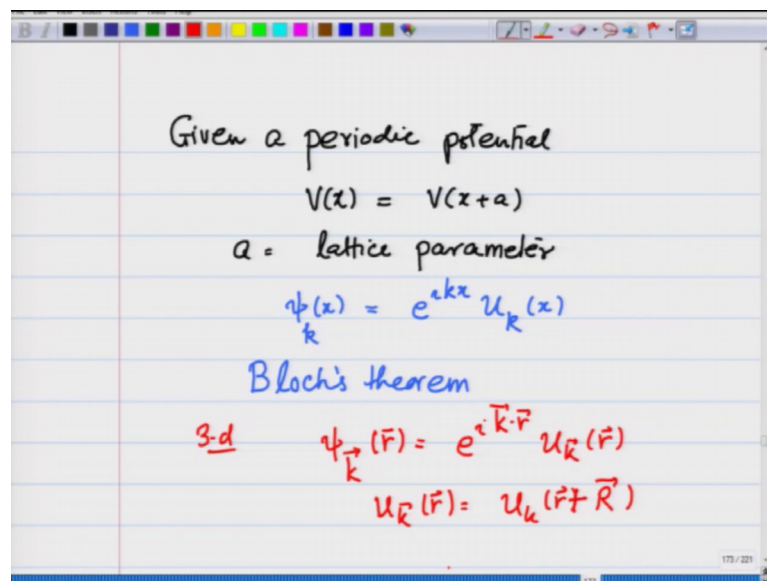 Given a periodic potential
V(x) = V(x+a)
a = lattice parameter
ψ_k(x) = e^{ikx} u_k(x)
Bloch's theorem
3-d ψ_{\vec{k}}(\vec{r}) = e^{i\vec{k}·\vec{r}} u_{\vec{k}}(\vec{r})
u_{\vec{k}}(\vec{r}) = u_k(\vec{r}+\vec{R})
173 / 221